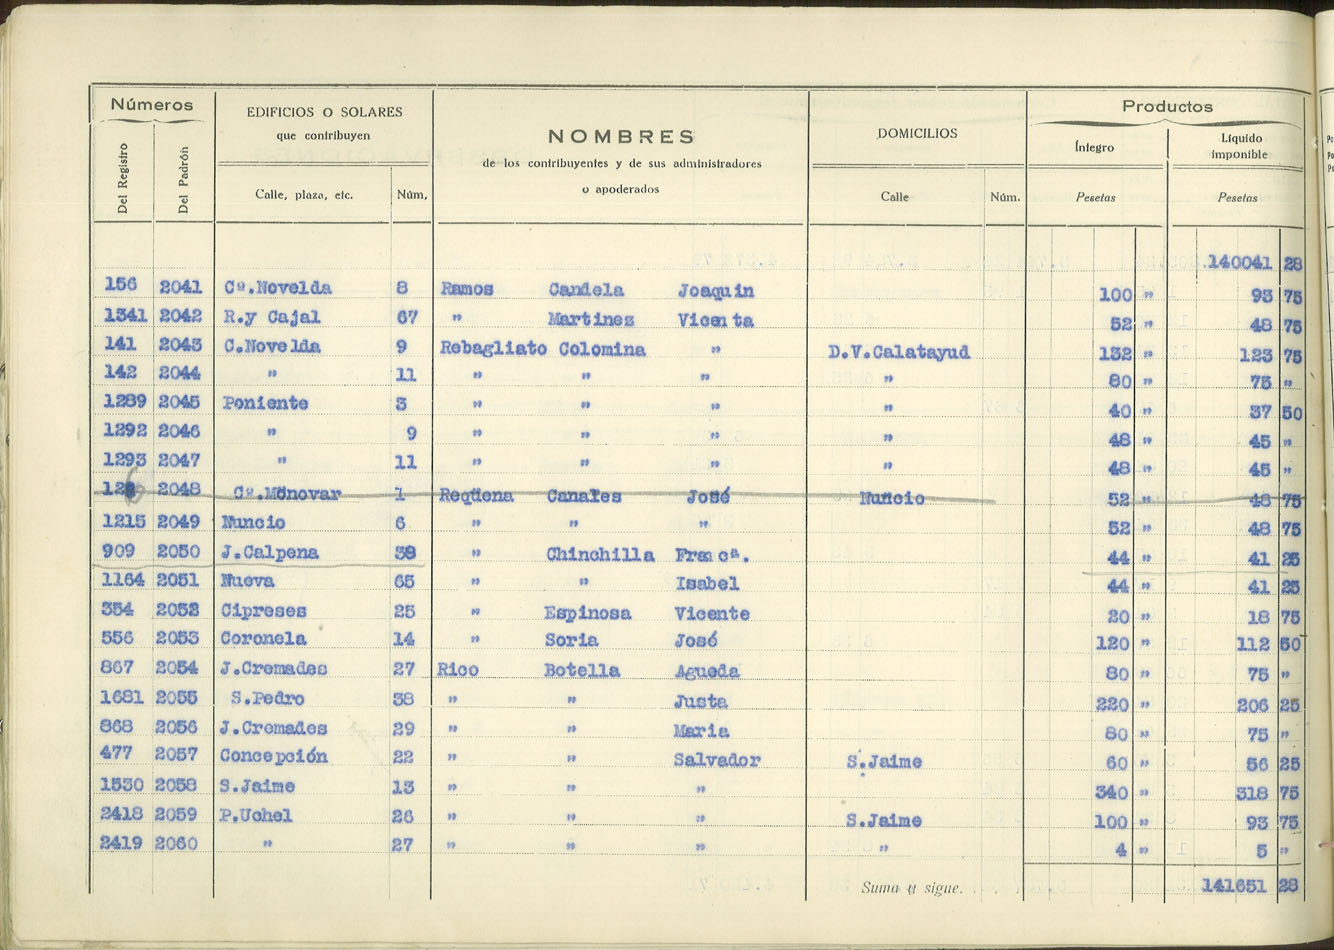 Números
EDIFICIOS O SOLARES
que contribuyen
NOMBRES
de los contribuyentes y de sus administradores
o apoderados
DOMICILIOS
Productos
Íntegro
Líquido
imponible
Del Registro
Del Padrón
Calle, plaza, etc.
Núm,
Calle
Núm.
Pesetas
Pesetas
140041 28
156 2041 Cª.Novelda 8 Ramos Candela Joaquin 100 " 93 75
1341 2042 R.y Cajal 67 " Martinez Vicenta 52 " 48 75
141 2043 C.Novelda 9 Rebagliato Colomina " D.V.Calatayud 132 " 123 75
142 2044 " 11 " " " " 80 " 75 "
1289 2045 Poniente 3 " " " " 40 " 37 50
1292 2046 " 9 " " " " 48 " 45 "
1293 2047 " 11 " " " " 48 " 45 "
126 2048 Cª.Monovar 1 Reqüena Canales José Nuncio 52 " 48 75
1215 2049 Nuncio 6 " " " 52 " 48 75
909 2050 J.Calpena 38 " Chinchilla Francª. 44 " 41 25
1164 2051 Nueva 65 " " Isabel 44 " 41 25
354 2052 Cipreses 25 " Espinosa Vicente 20 " 18 75
556 2053 Coronela 14 " Soria José 120 " 112 50
867 2054 J.Cremades 27 Rico Botella Agueda 80 " 75 "
1681 2055 S.Pedro 38 " " Justa 220 " 206 25
868 2056 J.Cremades 29 " " Maria 80 " 75 "
477 2057 Concepción 22 " " Salvador S.Jaime 60 " 56 25
1530 2058 S.Jaime 13 " " " 340 " 318 75
2418 2059 P.Uchel 26 " " " S.Jaime 100 " 93 75
2419 2060 " 27 " " " " 4 " 5 "
Suma y sigue. 141651 28